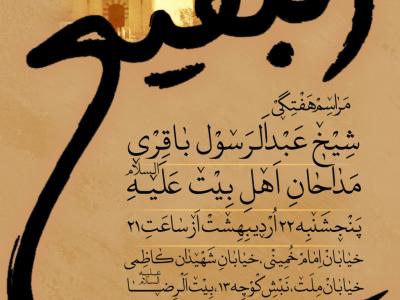 البقیع
مراسم هفتگی
شیخ عبدالرسول باقری
مداحان اهل بیت علیه السلام
پنجشنبه ۲۲ اردیبهشت از ساعت ۲۱
خیابان امام خمینی، خیابان شهیدان کاظمی
خیابان ملت، نبش کوچه ۱۳، بیت الرضا علیه السلام